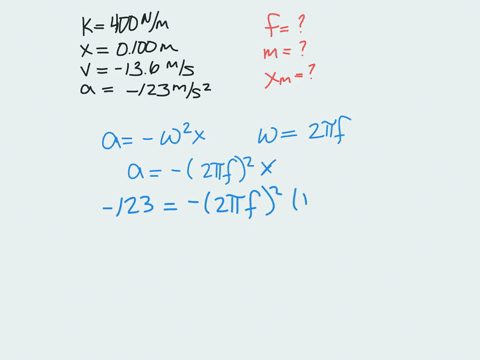 K = 400 N/m
x = 0.100 m
v = -13.6 m/s
a = -123 m/s²
f = ?
m = ?
xm = ?
a = -ω²x
ω = 2πf
a = -(2πf)² x
-123 = -(2πf)² (1